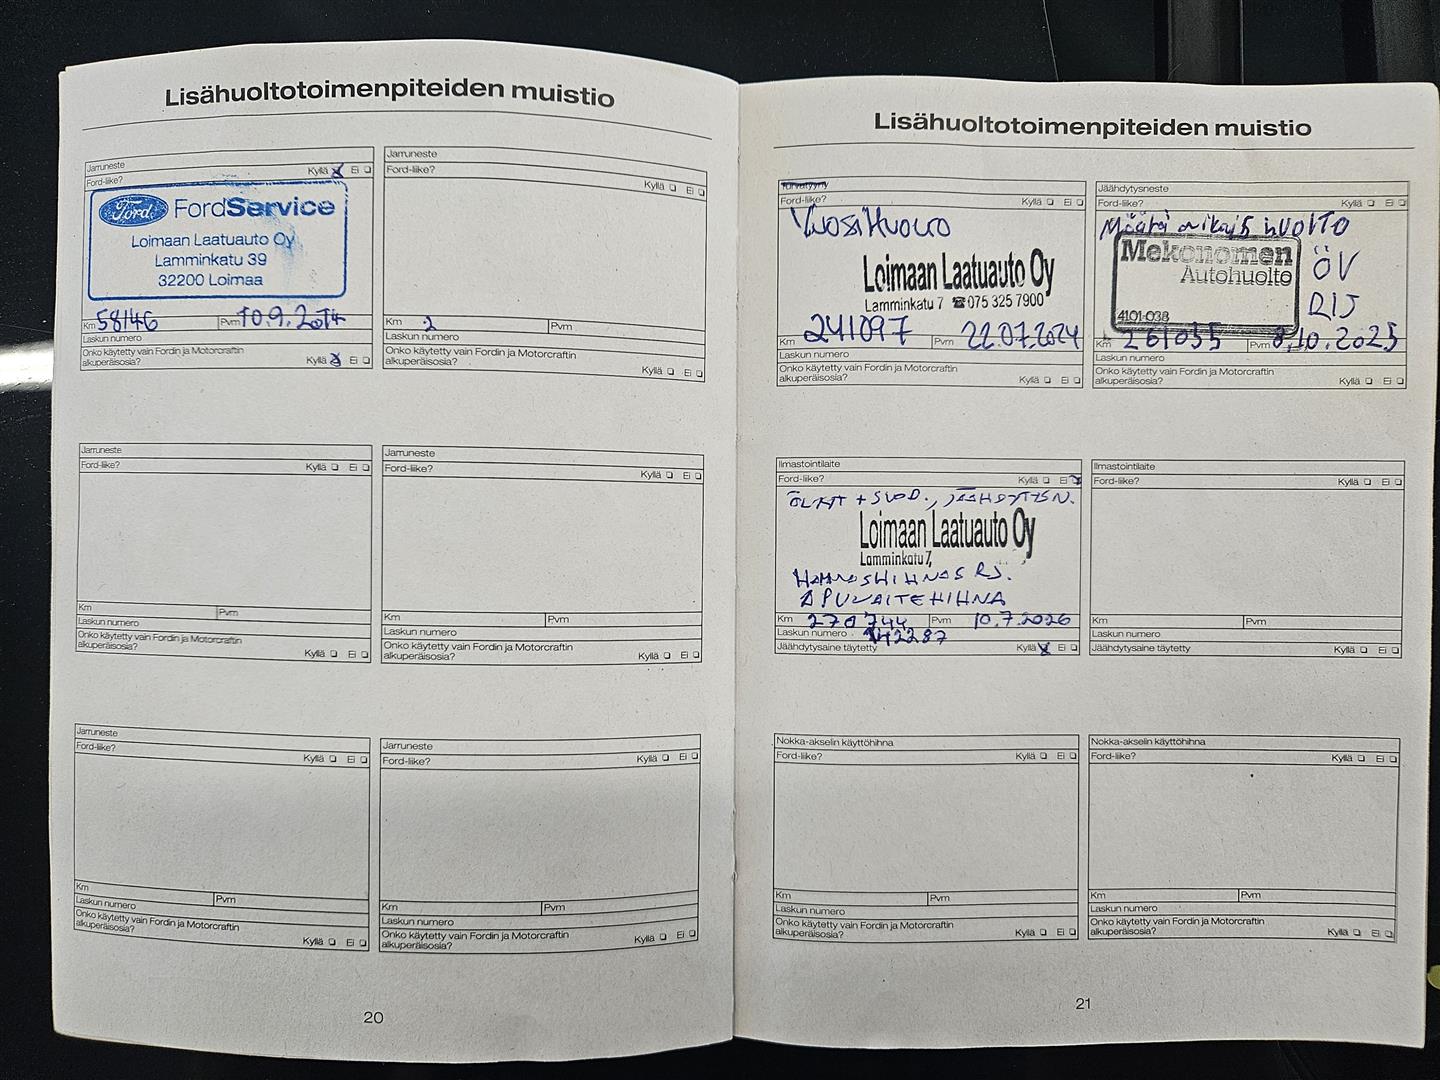 Lisähuoltotoimenpiteiden muistio
Jarruneste
Ford-liike? Kyllä Ei
Ford FordService
Loimaan Laatuauto Oy
Lamminkatu 39
32200 Loimaa
Km 58146 Pvm 10.9.2014
Laskun numero
Onko käytetty vain Fordin ja Motorcraftin
alkuperäisosia? Kyllä Ei
Jarruneste
Ford-liike?
Kyllä Ei
Km 2 Pvm
Laskun numero
Onko käytetty vain Fordin ja Motorcraftin
alkuperäisosia? Kyllä Ei
Jarruneste
Ford-liike? Kyllä Ei
Km Pvm
Laskun numero
Onko käytetty vain Fordin ja Motorcraftin
alkuperäisosia? Kyllä Ei
Jarruneste
Ford-liike? Kyllä Ei
Km Pvm
Laskun numero
Onko käytetty vain Fordin ja Motorcraftin
alkuperäisosia? Kyllä Ei
Jarruneste
Ford-liike?
Kyllä Ei
Km
Laskun numero Pvm
Onko käytetty vain Fordin ja Motorcraftin
alkuperäisosia? Kyllä Ei
Jarruneste
Ford-liike? Kyllä Ei
Km Pvm
Laskun numero
Onko käytetty vain Fordin ja Motorcraftin
alkuperäisosia? Kyllä Ei
20
Lisähuoltotoimenpiteiden muistio
Turvatyyny
Ford-liike? Kyllä Ei
Vuosihuolto
Loimaan Laatuauto Oy
Lamminkatu 7 ☎075 325 7900
Km 241097 Pvm 22.07.2024
Laskun numero
Onko käytetty vain Fordin ja Motorcraftin
alkuperäisosia? Kyllä Ei
Jäähdytysneste
Ford-liike? Kyllä Ei
Määräaikais huolto
Mekonomen
Autohuolto
ÖV
RIJ
4101-038
Km 261035 Pvm 8.10.2025
Laskun numero
Onko käytetty vain Fordin ja Motorcraftin
alkuperäisosia? Kyllä Ei
Ilmastointilaite
Ford-liike? Kyllä Ei
ÖLJYT + SUOD., JÄÄHDYTYSN.
Loimaan Laatuauto Oy
Lamminkatu 7,
HAMMASHIHNAS RJ.
APULAITEHIHNA
Km 270744 Pvm 10.7.2026
Laskun numero 142287
Jäähdytysaine täytetty Kyllä Ei
Ilmastointilaite
Ford-liike? Kyllä Ei
Km Pvm
Laskun numero
Jäähdytysaine täytetty Kyllä Ei
Nokka-akselin käyttöhihna
Ford-liike? Kyllä Ei
Km Pvm
Laskun numero
Onko käytetty vain Fordin ja Motorcraftin
alkuperäisosia? Kyllä Ei
Nokka-akselin käyttöhihna
Ford-liike? Kyllä Ei
Km Pvm
Laskun numero
Onko käytetty vain Fordin ja Motorcraftin
alkuperäisosia? Kyllä Ei
21